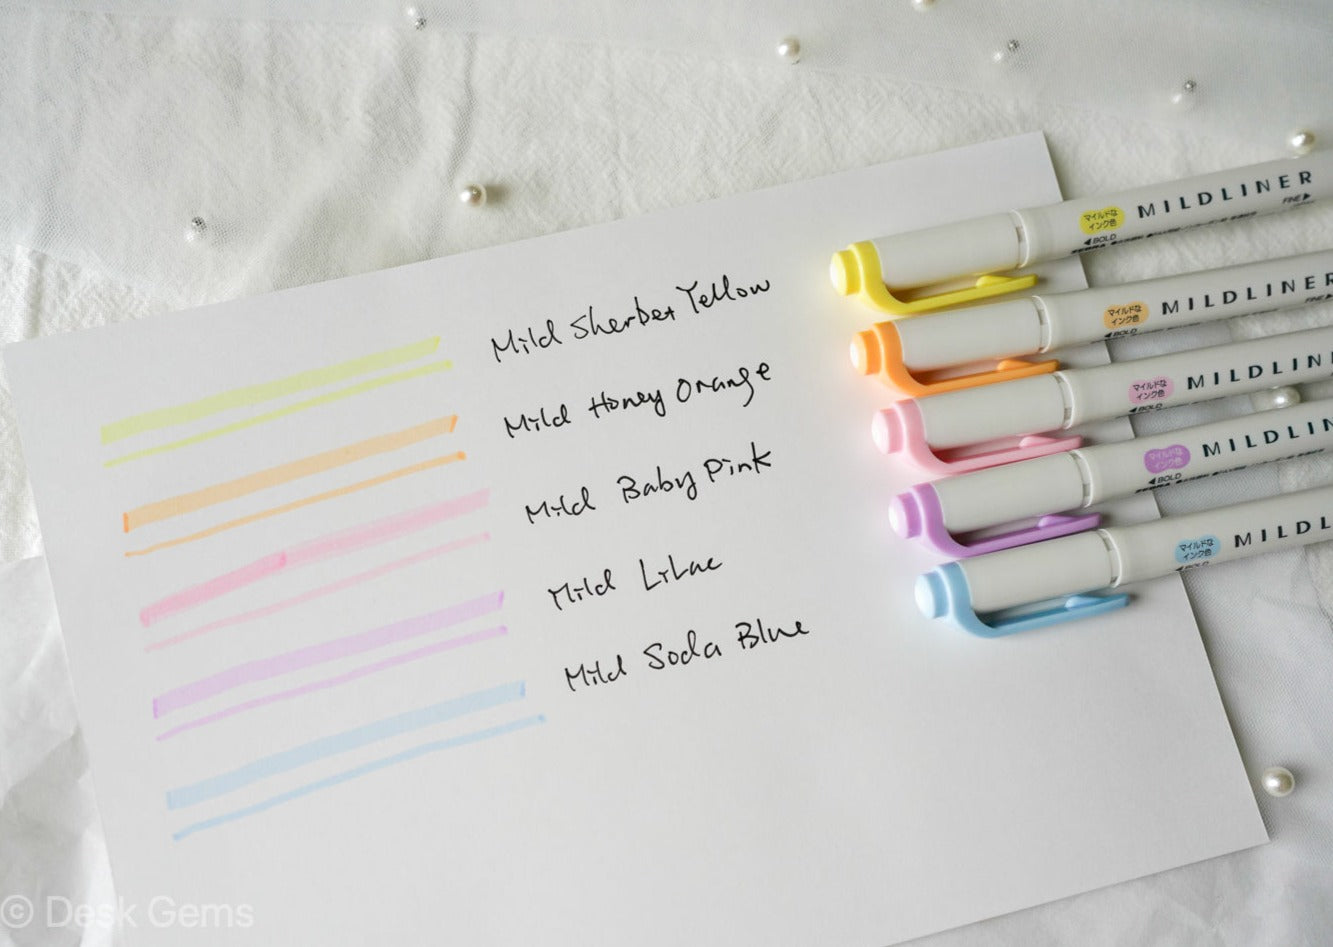 Mild Sherbet Yellow
Mild Honey Orange
Mild Baby Pink
Mild Lilac
Mild Soda Blue
マイルドな
インク色
MILDLINER
FINE▶
◀BOLD
マイルドな
インク色
MILDLINER
FINE▶
◀BOLD
マイルドな
インク色
MILDLIN
◀BOLD
マイルドな
インク色
MILDLIN
◀BOLD
マイルドな
インク色
MILDL
◀BOLD
© Desk Gems